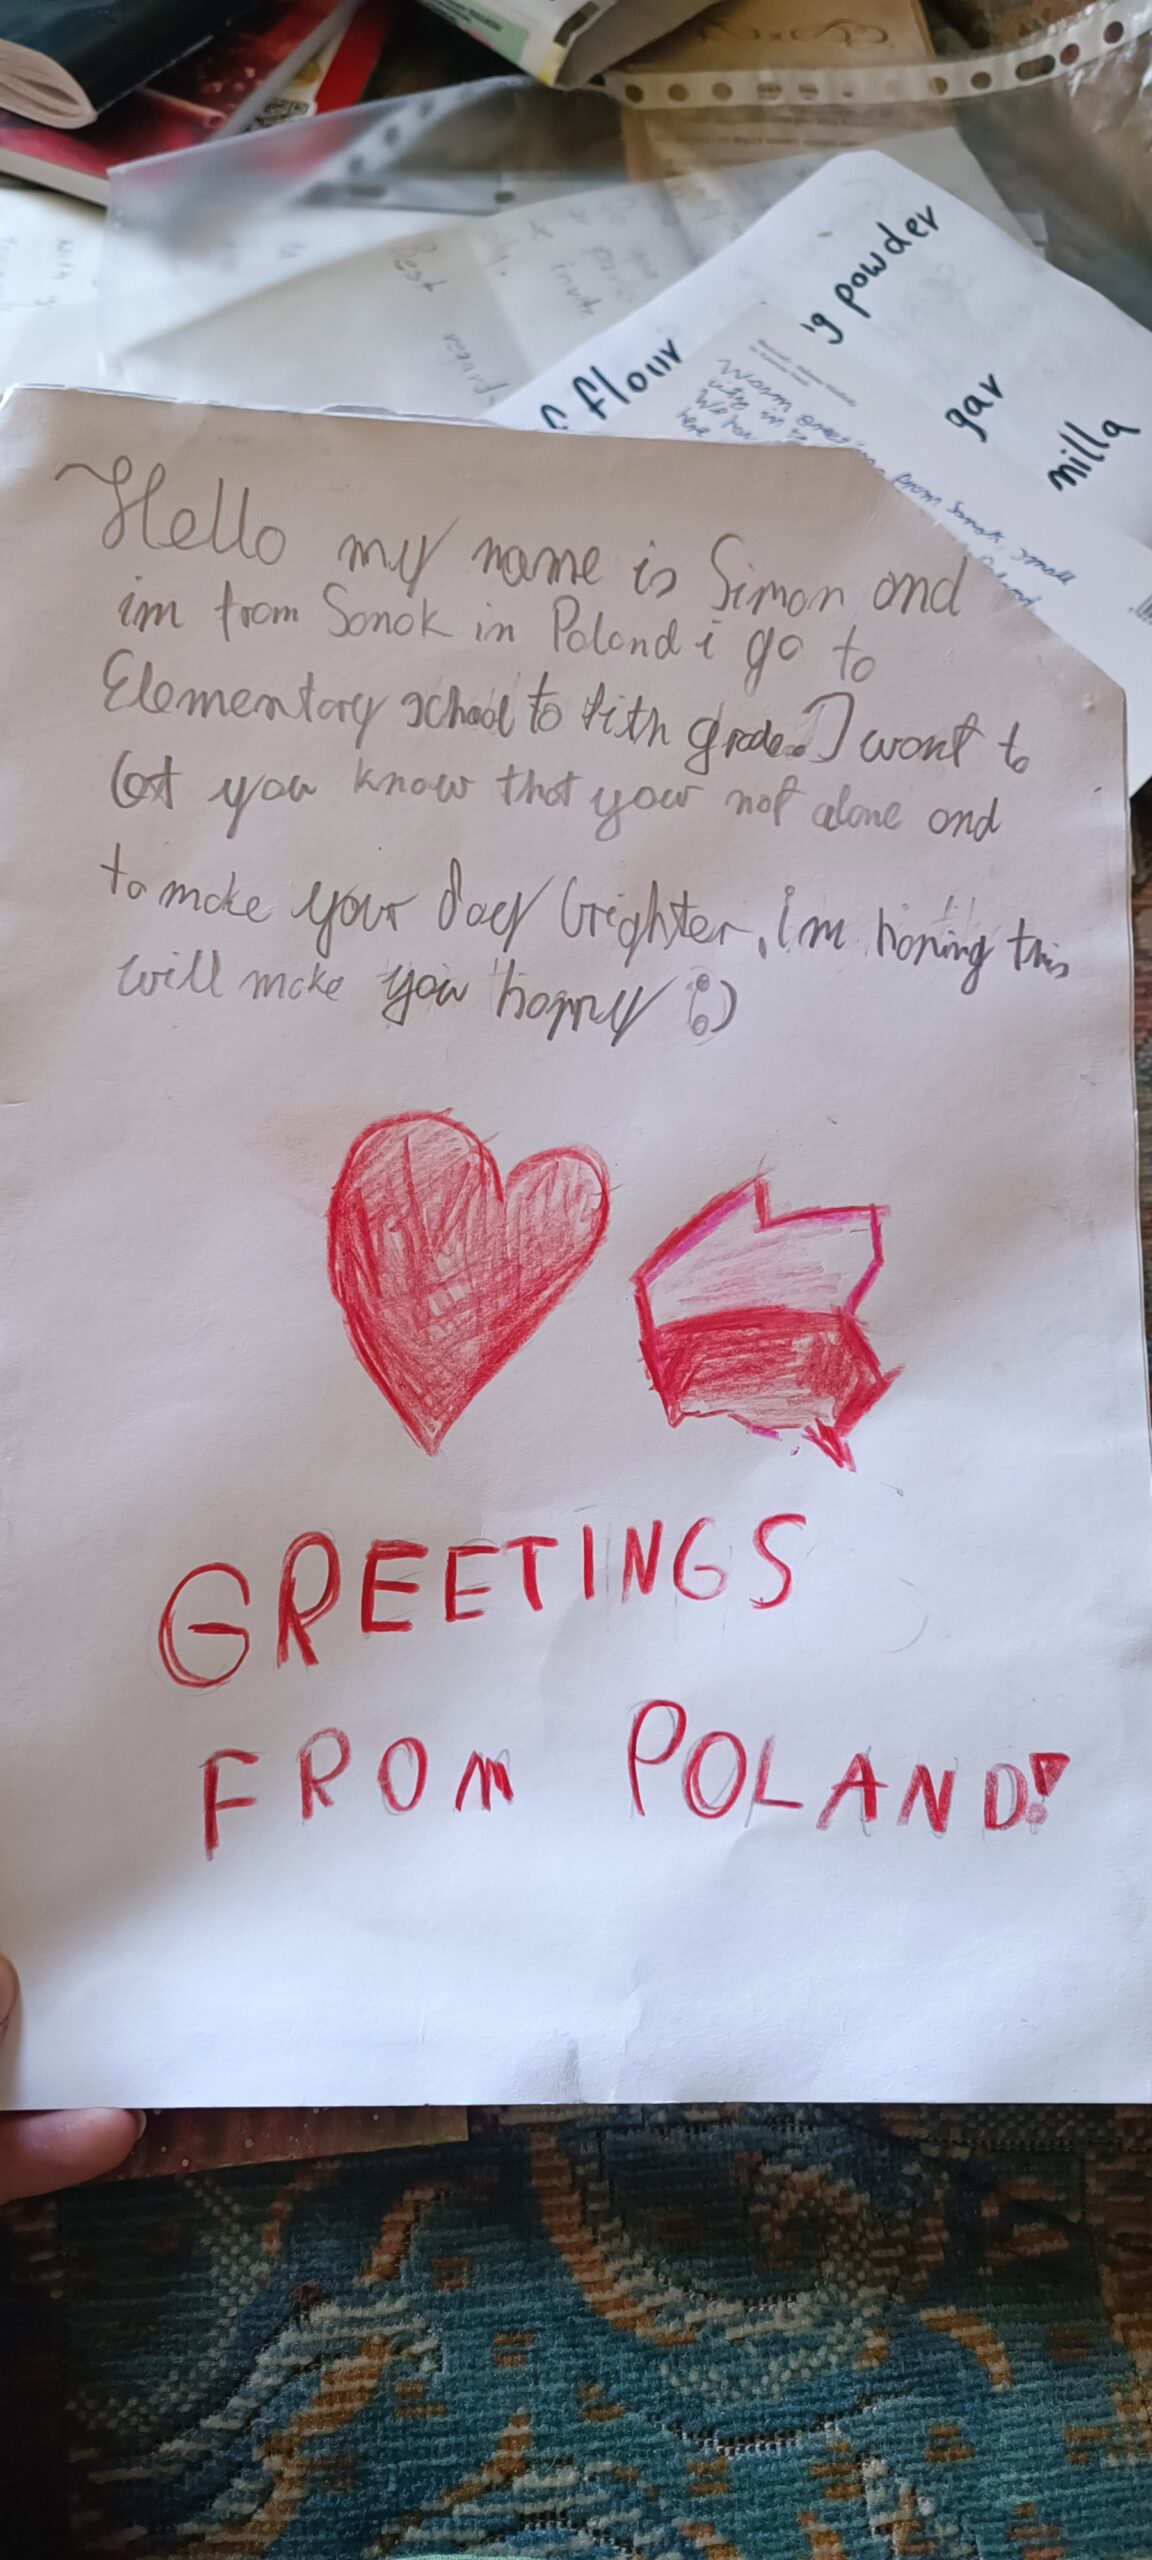 g powder
flour
gar
nilla
Best
from Sanok, small
here
Hello my name is Simon and
im from Sanok in Poland i go to
Elementary school to fith grade. I want to
let you know that your not alone and
to make your day brighter, im hoping this
will make you happy :)
GREETINGS
FROM POLAND!